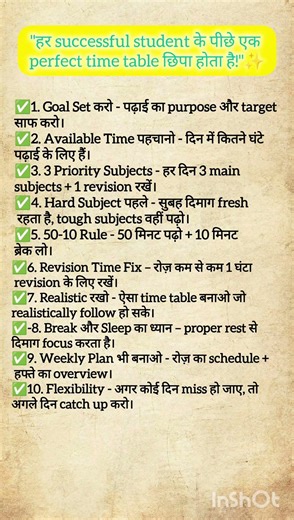 "हर successful student के पीछे एक
perfect time table छिपा होता है!"✨
✅1. Goal Set करो - पढ़ाई का purpose और target
साफ करो।
✅2. Available Time पहचानो - दिन में कितने घंटे
पढ़ाई के लिए हैं।
✅3. 3 Priority Subjects - हर दिन 3 main
subjects + 1 revision रखें।
✅4. Hard Subject पहले - सुबह दिमाग fresh
रहता है, tough subjects वहीं पढ़ो।
✅5. 50-10 Rule - 50 मिनट पढ़ो + 10 मिनट
ब्रेक लो।
✅6. Revision Time Fix – रोज़ कम से कम 1 घंटा
revision के लिए रखें।
✅7. Realistic रखो - ऐसा time table बनाओ जो
realistically follow हो सके।
✅-8. Break और Sleep का ध्यान – proper rest से
दिमाग focus करता है।
✅9. Weekly Plan भी बनाओ - रोज़ का schedule +
हफ्ते का overview।
✅10. Flexibility - अगर कोई दिन miss हो जाए, तो
अगले दिन catch up करो।
InShOt